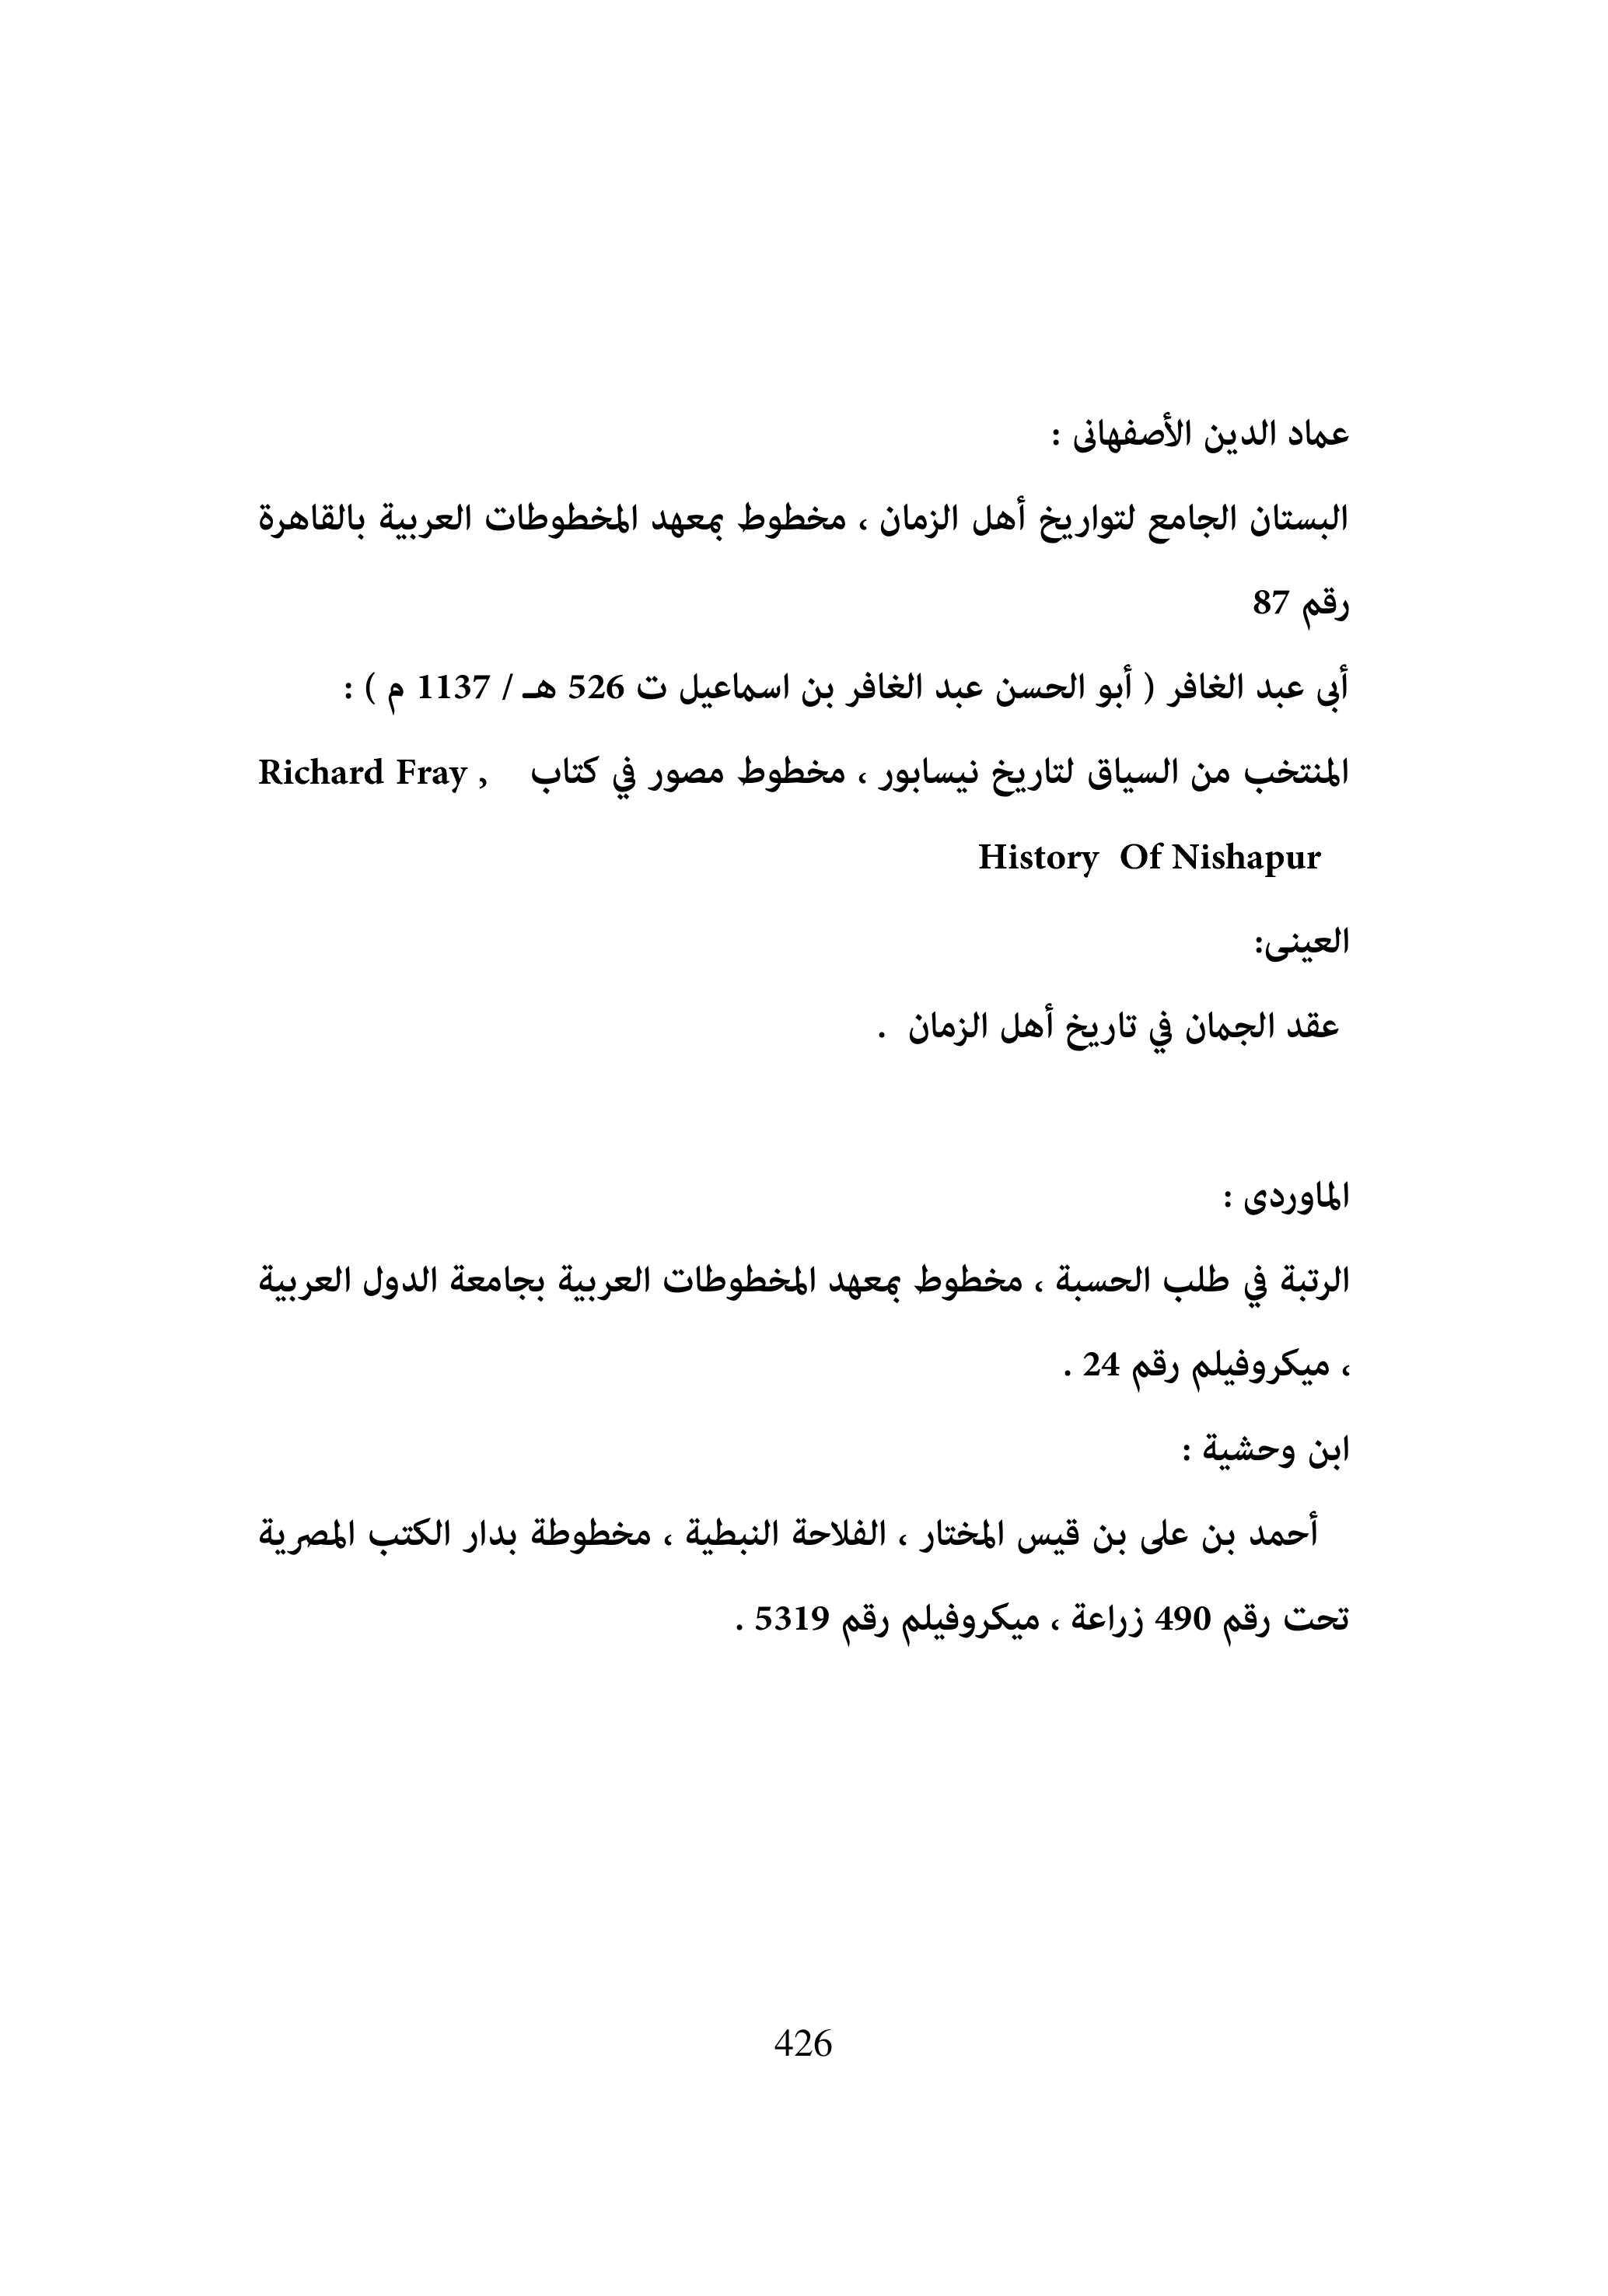 عماد الدين الأصفهانى :
البستان الجامع لتواريخ أهل الزمان ، مخطوط بمعهد المخطوطات العربية بالقاهرة
رقم 87
أبى عبد الغافر ( أبو الحسن عبد الغافر بن اسماعيل ت 526 هـ / 1137 م ) :
المنتخب من السياق لتاريخ نيسابور ، مخطوط مصور في كتاب Richard Fray ,
History Of Nishapur
العينى:
عقد الجمان في تاريخ أهل الزمان .
الماوردى :
الرتبة في طلب الحسبة ، مخطوط بمعهد المخطوطات العربية بجامعة الدول العربية
، ميكروفيلم رقم 24 .
ابن وحشية :
أحمد بن على بن قيس المختار ، الفلاحة النبطية ، مخطوطة بدار الكتب المصرية
تحت رقم 490 زراعة ، ميكروفيلم رقم 5319 .
426